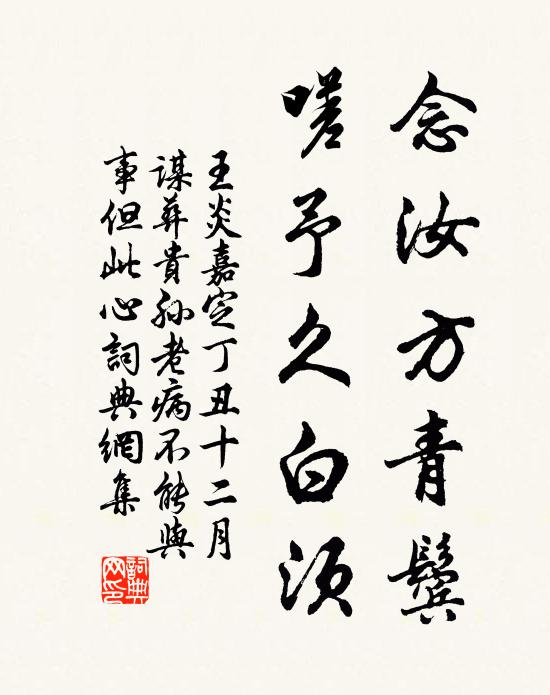 念汝方青鬓
嗟予久白须
王炎嘉定丁丑十二月
谋葬貴孙老病不能與
事但此心詞典網集
詞典网印